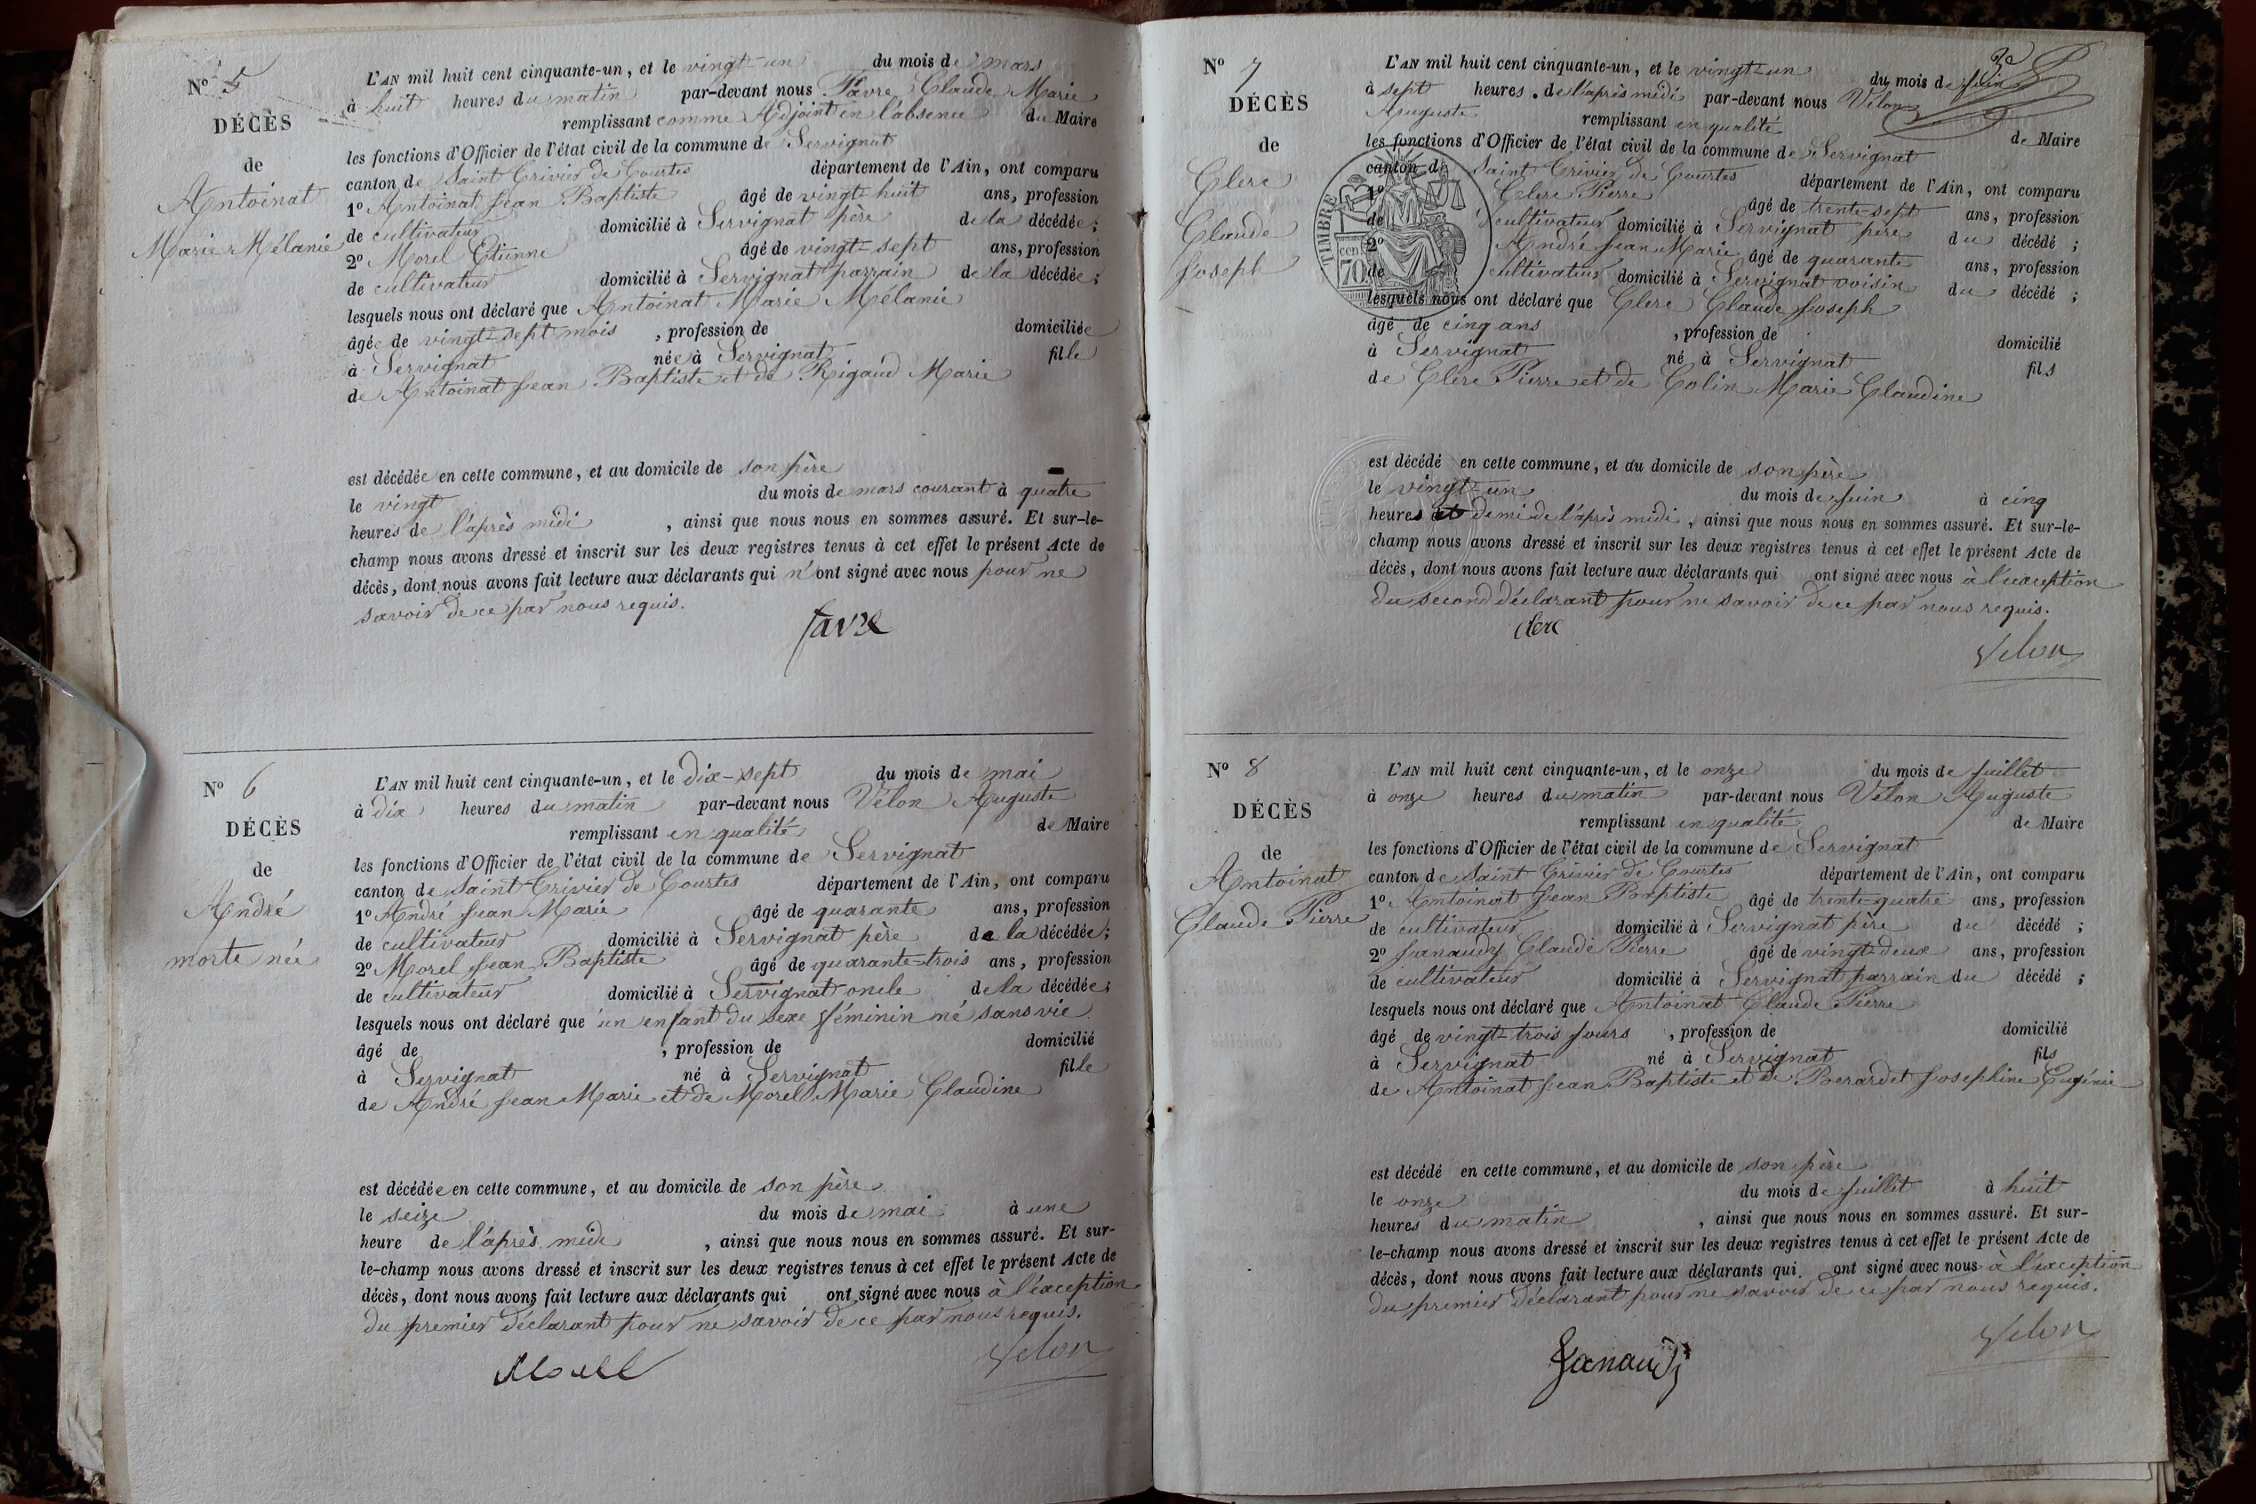 Nº 5
DÉCÈS
de
Antoinat
Marie Mélanie
L'AN mil huit cent cinquante-un, et le vingt-un du mois de mars
à huit heures du matin par-devant nous Favre Claude Marie
remplissant comme Adjoint en l'absence du Maire
les fonctions d'Officier de l'état civil de la commune de Servignat
canton de Saint Trivier de Courtes département de l'Ain, ont comparu
1º Antoinat Jean Baptiste âgé de vingt-huit ans, profession
de cultivateur domicilié à Servignat père de la décédée;
2º Morel Etienne âgé de vingt-sept ans, profession
de cultivateur domicilié à Servignat parrain de la décédée;
lesquels nous ont déclaré que Antoinat Marie Mélanie
âgée de vingt-sept mois , profession de domiciliée
à Servignat née à Servignat fille
de Antoinat Jean Baptiste et de Rigaud Marie
est décédée en cette commune, et au domicile de son père
le vingt du mois de mars courant à quatre
heures de l'après midi , ainsi que nous nous en sommes assuré. Et sur-le-
champ nous avons dressé et inscrit sur les deux registres tenus à cet effet le présent Acte de
décès, dont nous avons fait lecture aux déclarants qui n'ont signé avec nous pour ne
savoir de ce par nous requis.
favre
Nº 6
DÉCÈS
de
André
morte née
L'AN mil huit cent cinquante-un, et le dix-sept du mois de mai
à dix heures du matin par-devant nous Vélon Auguste
remplissant en qualité de Maire
les fonctions d'Officier de l'état civil de la commune de Servignat
canton de Saint Trivier de Courtes département de l'Ain, ont comparu
1º André Jean Marie âgé de quarante ans, profession
de cultivateur domicilié à Servignat père de la décédée;
2º Morel Jean Baptiste âgé de quarante-trois ans, profession
de cultivateur domicilié à Servignat oncle de la décédée;
lesquels nous ont déclaré que un enfant du sexe féminin né sans vie
âgé de , profession de domicilié
à Servignat né à Servignat fille
de André Jean Marie et de Morel Marie Claudine
est décédée en cette commune, et au domicile de son père
le seize du mois de mai à une
heure de l'après midi , ainsi que nous nous en sommes assuré. Et sur-
le-champ nous avons dressé et inscrit sur les deux registres tenus à cet effet le présent Acte de
décès, dont nous avons fait lecture aux déclarants qui ont signé avec nous à l'éxception
du premier déclarant pour ne savoir de ce par nous requis.
Morel Velon
3e
Nº 7
DÉCÈS
de
Clerc
Claude
Joseph
L'AN mil huit cent cinquante-un, et le vingt-un du mois de juin
à sept heures de l'après midi par-devant nous Vélon
Auguste remplissant en qualité de Maire
les fonctions d'Officier de l'état civil de la commune de Servignat
canton de Saint Trivier de Courtes département de l'Ain, ont comparu
1º Clerc Pierre âgé de trente-sept ans, profession
de cultivateur domicilié à Servignat père du décédé;
2º André Jean Marie âgé de quarante ans, profession
de cultivateur domicilié à Servignat voisin du décédé;
lesquels nous ont déclaré que Clerc Claude Joseph
âgé de cinq ans , profession de domicilié
à Servignat né à Servignat fils
de Clerc Pierre et de Colin Marie Claudine
TIMBRE
cen
70
est décédé en cette commune, et au domicile de son père
le vingt-un du mois de juin à cinq
heures et demi de l'après midi , ainsi que nous nous en sommes assuré. Et sur-le-
champ nous avons dressé et inscrit sur les deux registres tenus à cet effet le présent Acte de
décès, dont nous avons fait lecture aux déclarants qui ont signé avec nous à l'éxception
du second déclarant pour ne savoir de ce par nous requis.
clerc
Velon
Nº 8
DÉCÈS
de
Antoinat
Claude Pierre
L'AN mil huit cent cinquante-un, et le onze du mois de juillet
à onze heures du matin par-devant nous Vélon Auguste
remplissant en qualité de Maire
les fonctions d'Officier de l'état civil de la commune de Servignat
canton de Saint Trivier de Courtes département de l'Ain, ont comparu
1º Antoinat Jean Baptiste âgé de trente-quatre ans, profession
de cultivateur domicilié à Servignat père du décédé;
2º Janaudy Claude Pierre âgé de vingt-deux ans, profession
de cultivateur domicilié à Servignat parrain du décédé;
lesquels nous ont déclaré que Antoinat Claude Pierre
âgé de vingt-trois jours , profession de domicilié
à Servignat né à Servignat fils
de Antoinat Jean Baptiste et de Berardet Josephine Eugénie
est décédé en cette commune, et au domicile de son père
le onze du mois de juillet à huit
heures du matin , ainsi que nous nous en sommes assuré. Et sur-
le-champ nous avons dressé et inscrit sur les deux registres tenus à cet effet le présent Acte de
décès, dont nous avons fait lecture aux déclarants qui ont signé avec nous à l'éxception
du premier déclarant pour ne savoir de ce par nous requis.
Janaudy Velon